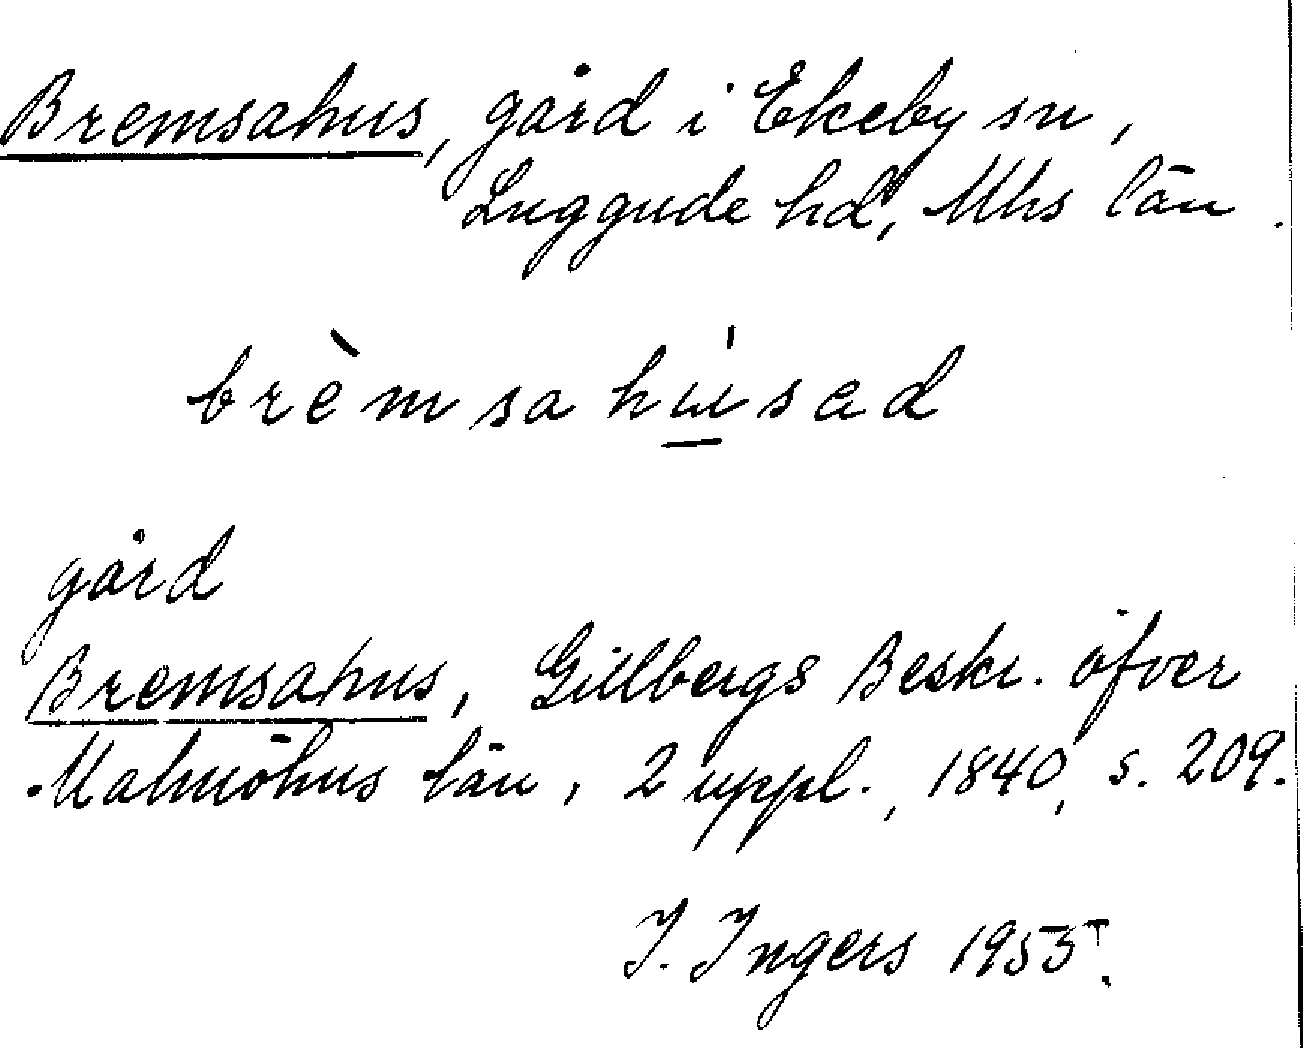 Bremsahus, gård i Ekeby sn,
Luggude hd, Mhs län.
brèmsahu̲ı́sad
gård
Bremsahus, Gillbergs Beskr. öfver
Malmöhus län, 2 uppl., 1840, s. 209.
I. Ingers 1955.